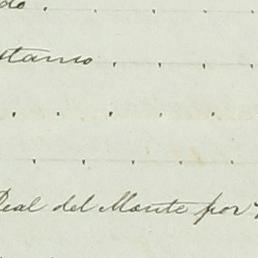 do . . . . .
stamo . . . .
. . . .
. . . . .
Real del Monte por